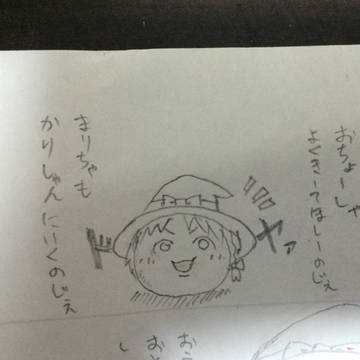 おちょーしゃ
よくきーてほしーのじぇ
ヤァ
まりちゃも
かりしゃんにいくのじぇ